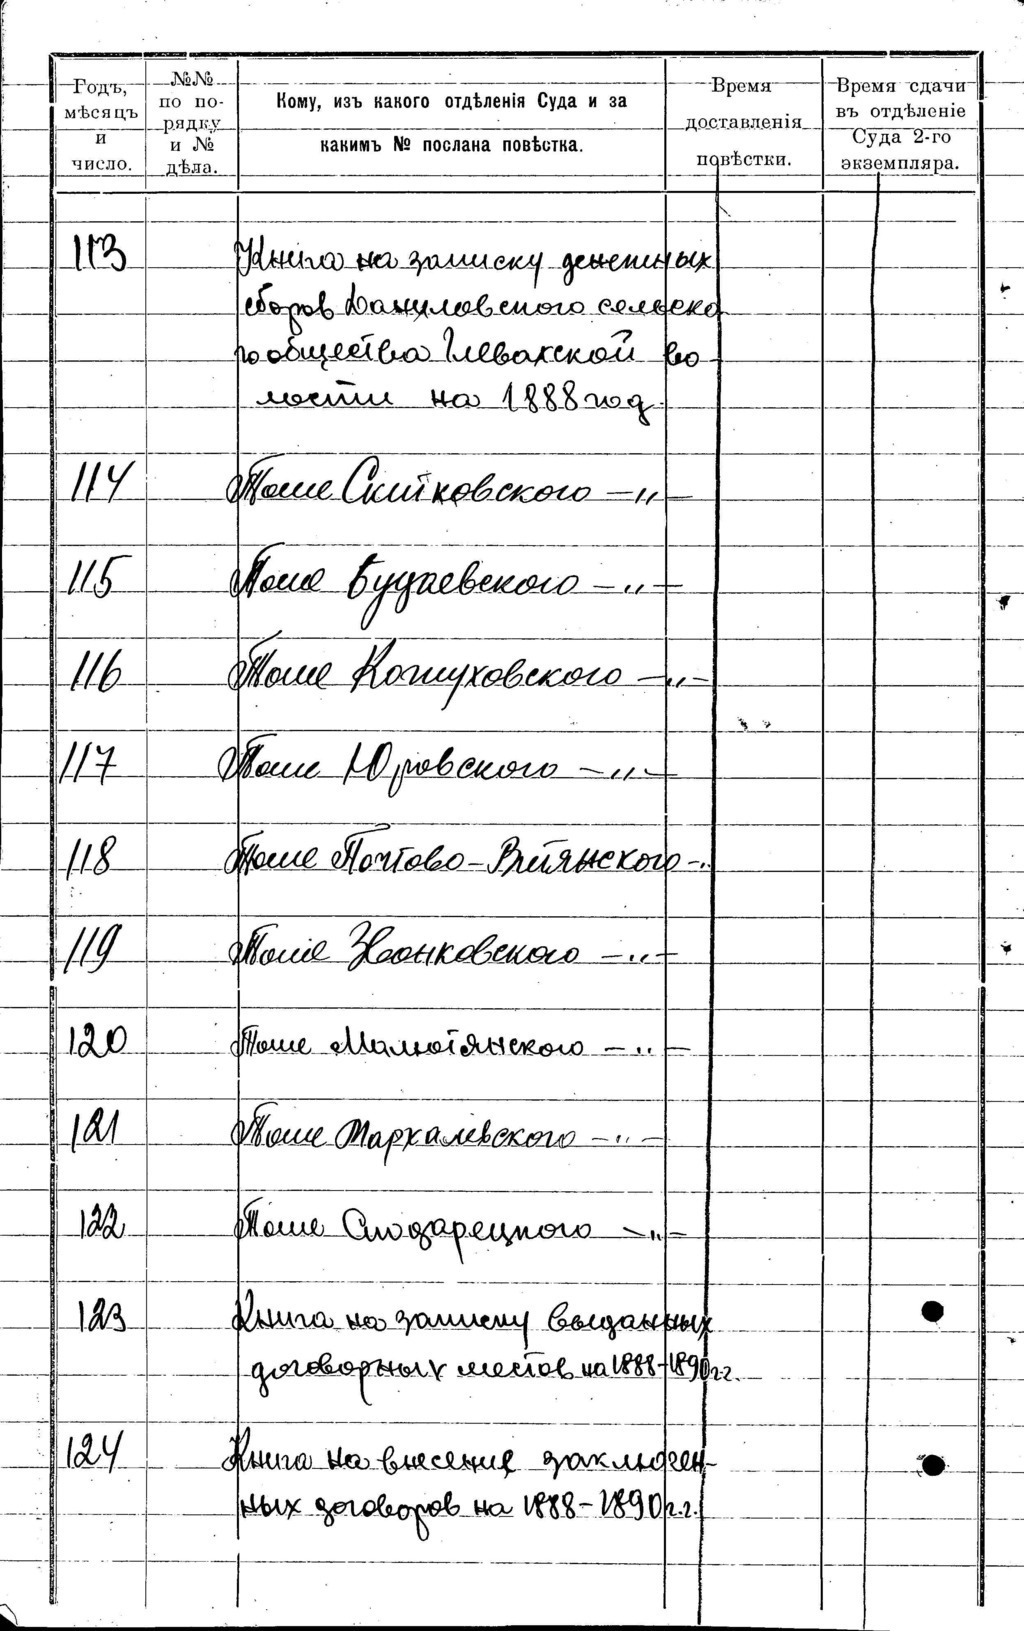 Годъ, мѣсяцъ и число.
№№ по порядку и № дѣла.
Кому, изъ какого отдѣленія Суда и за какимъ № послана повѣстка.
Время доставленія повѣстки.
Время сдачи въ отдѣленіе Суда 2-го экземпляра.
113 Книга на записку денежных
сборов Даниловского сельско
го общества Глевахской во
лости на 1888 год.
114 Тоже Скитковского —„—
115 Тоже Будаевского —„—
116 Тоже Кожуховского —„—
117 Тоже Юровского —„—
118 Тоже Почтово-Витянского —„
119 Тоже Звонковского —„—
120 Тоже Малютянского —„—
121 Тоже Мархалевского —„—
122 Тоже —„—
123 Книга на записку выданных
договорных листов на 1888-1890 г.г.
124 Книга на внесение заключен-
ных договоров на 1888-1890 г.г.